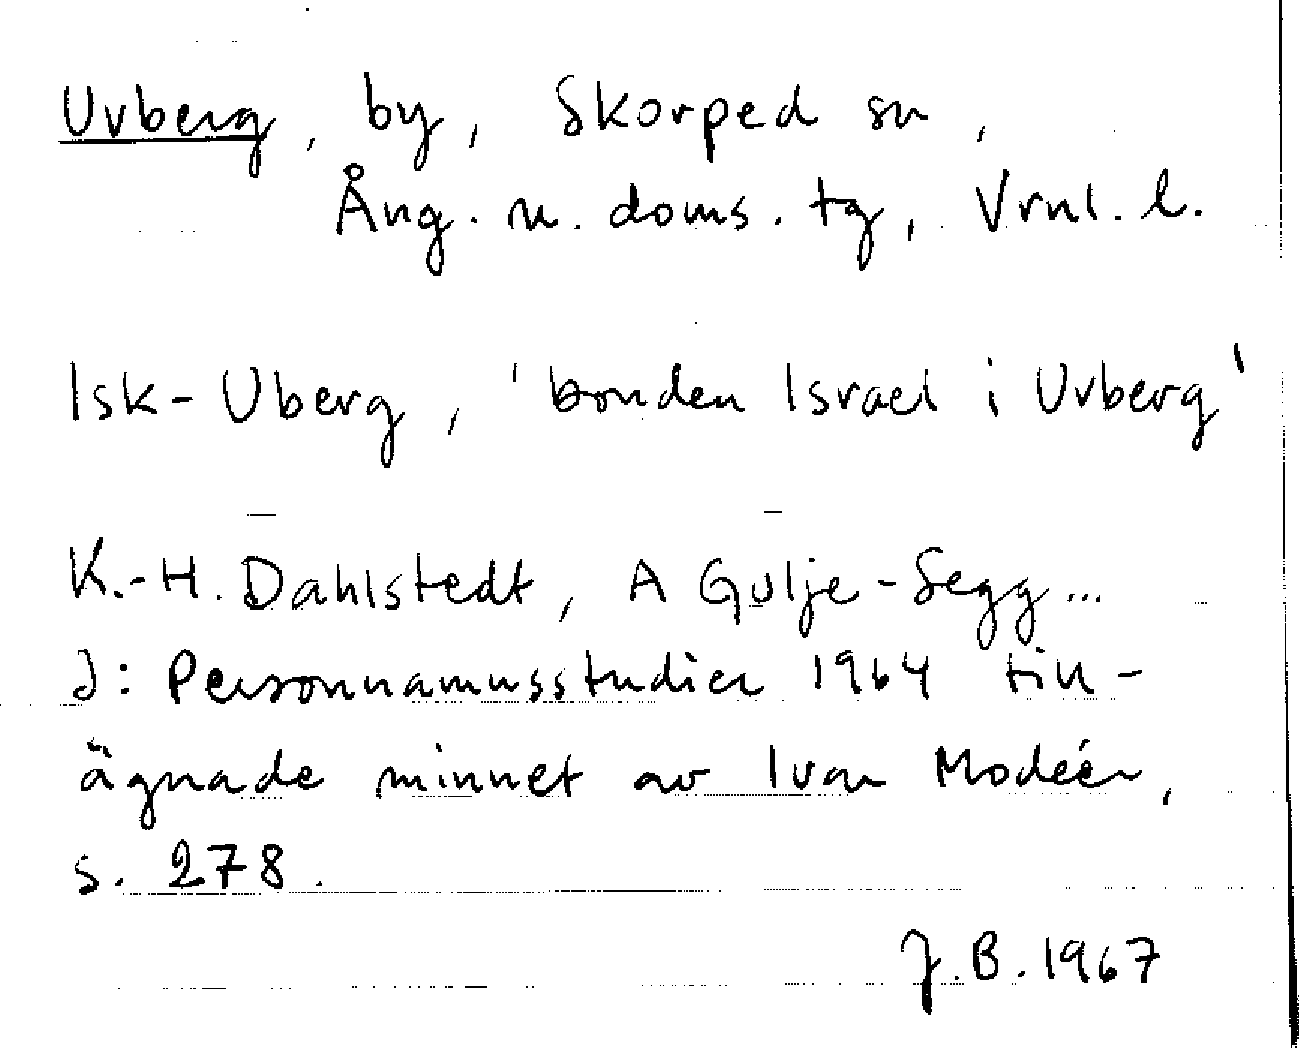 Uvberg, by, Skorped sn,
Ång. n. doms. tg, Vrnl. l.
Isk-Uberg, 'bonden Israel i Uvberg'
K.-H. Dahlstedt, A Gulje-Segg...
I: Personnamnsstudier 1964 till-
ägnade minnet av Ivar Modéer,
s. 278.
J.B. 1967